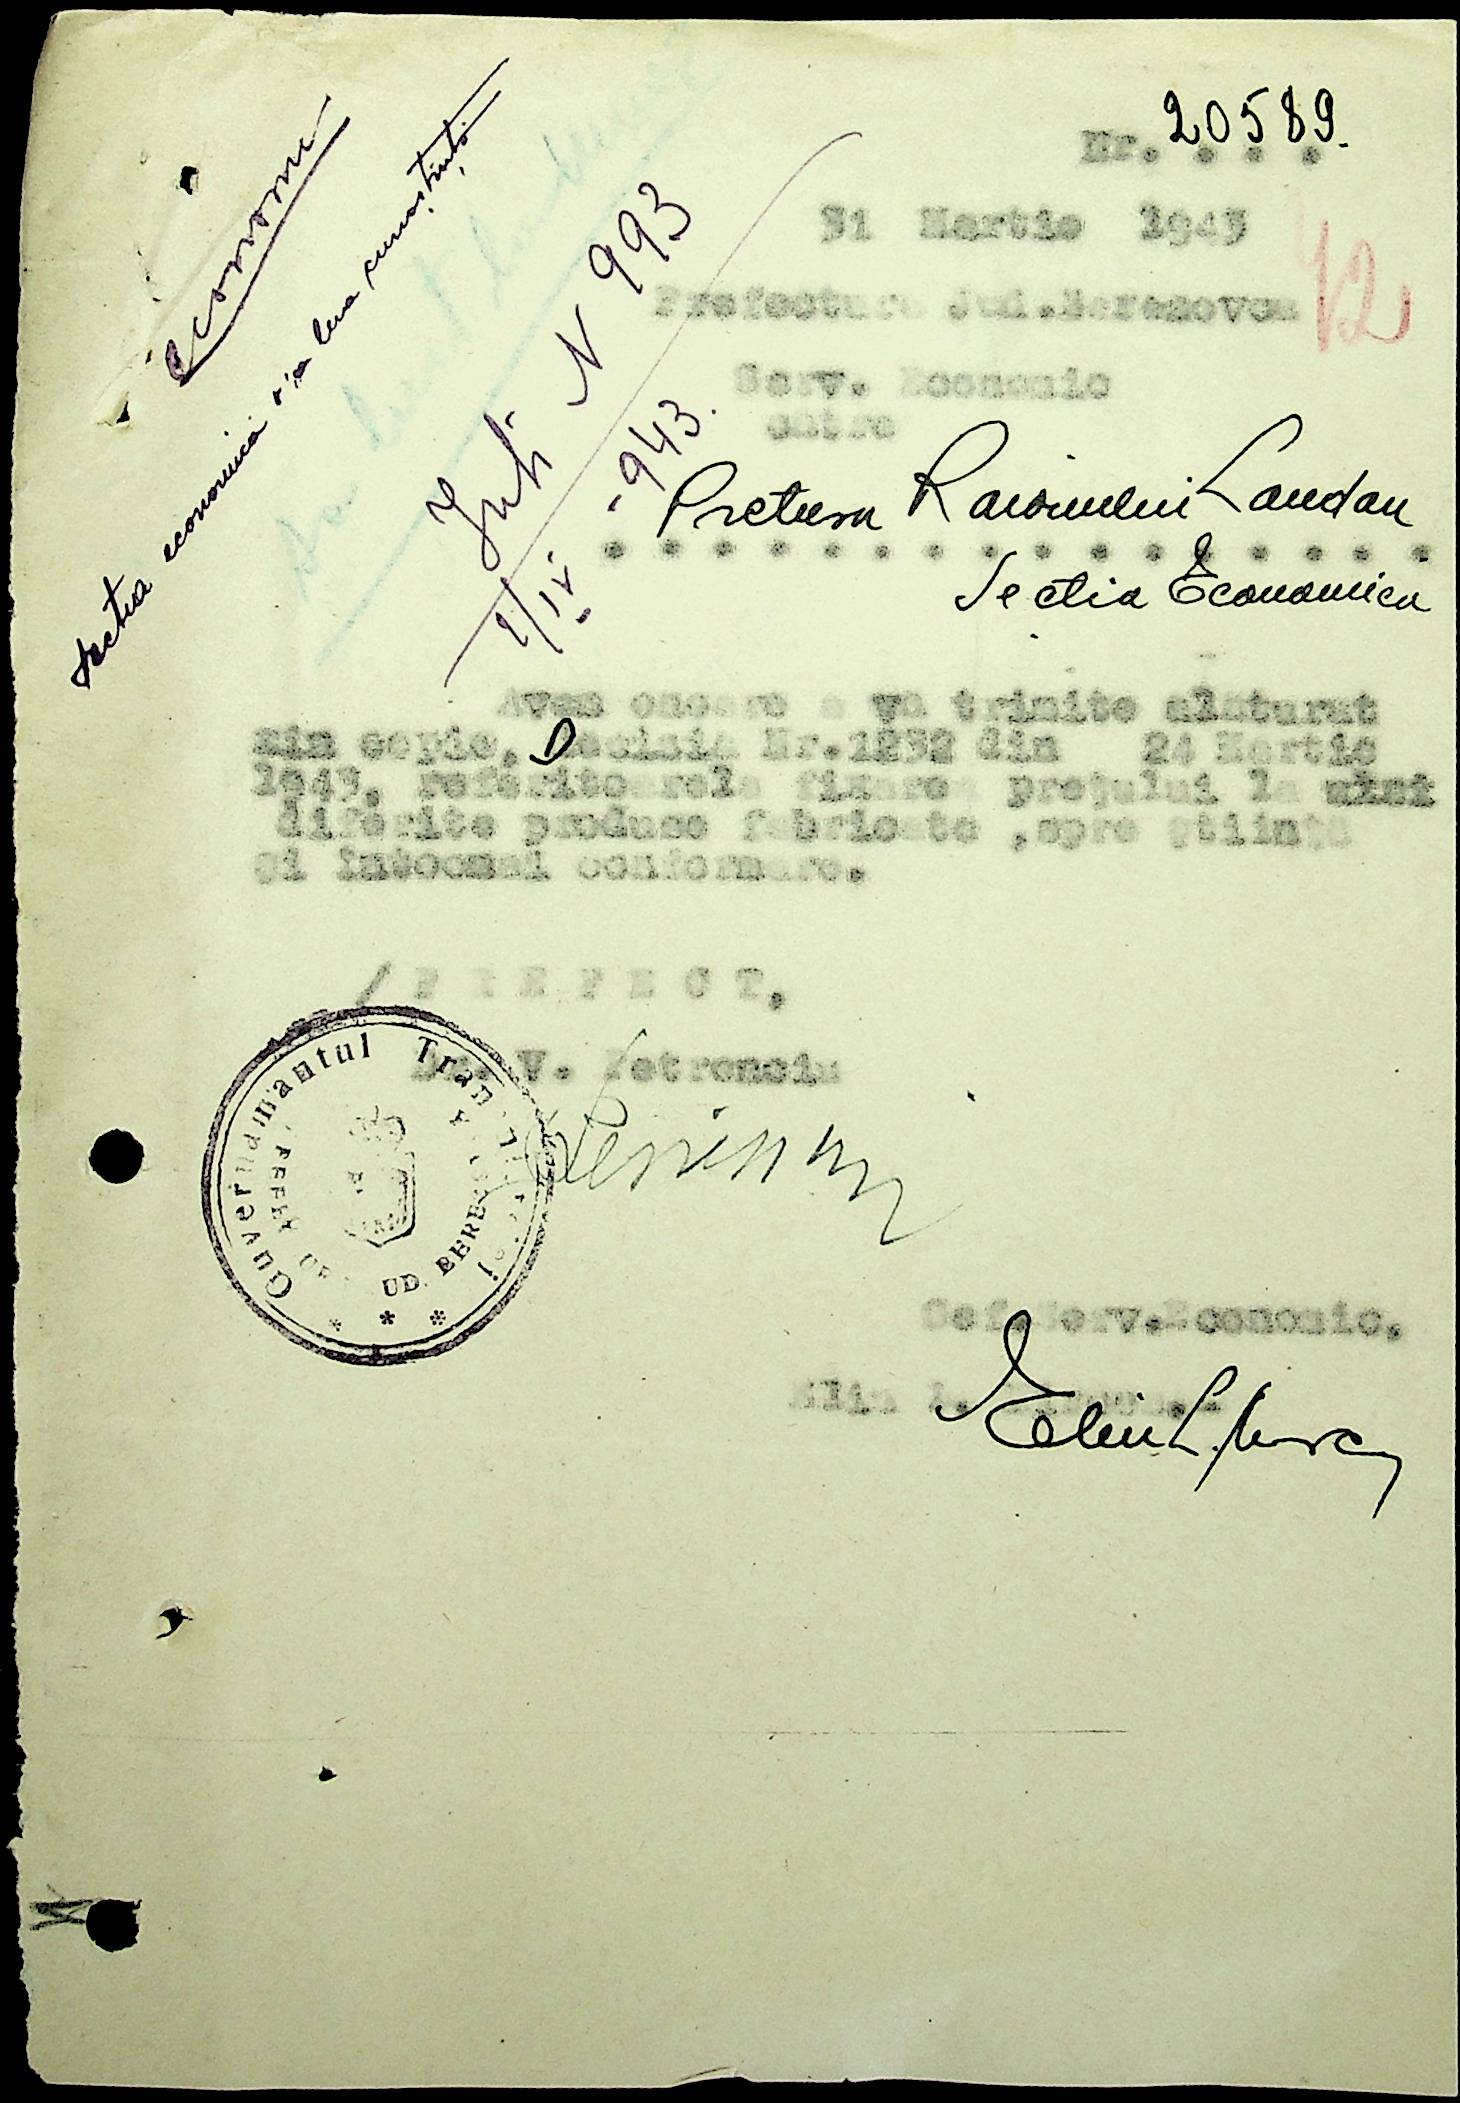 Nr. 20589.
31 Martie 1943
42
Prefectura Jud. Berezovca
Serv. Economic
catre
Pretura Raionului Landau
Sectia Economica
economic
Sectia economica v'a lua cunoștință
Intr. N 993
1/IV - 943.
Avem onoare a va trimite alaturat
in copie, Decizia Nr.1232 din 24 Martie
1943, referitoare la fixarea prețului la
diferite produse fabricate ,spre știință
și întocmai conformare.
/ P R E F E C T,
V. Petrenciu
Guvernamantul Transnistriei
PREFECTURA JUD. BEREZOVCA
* * *
Sef. Serv. Economic,